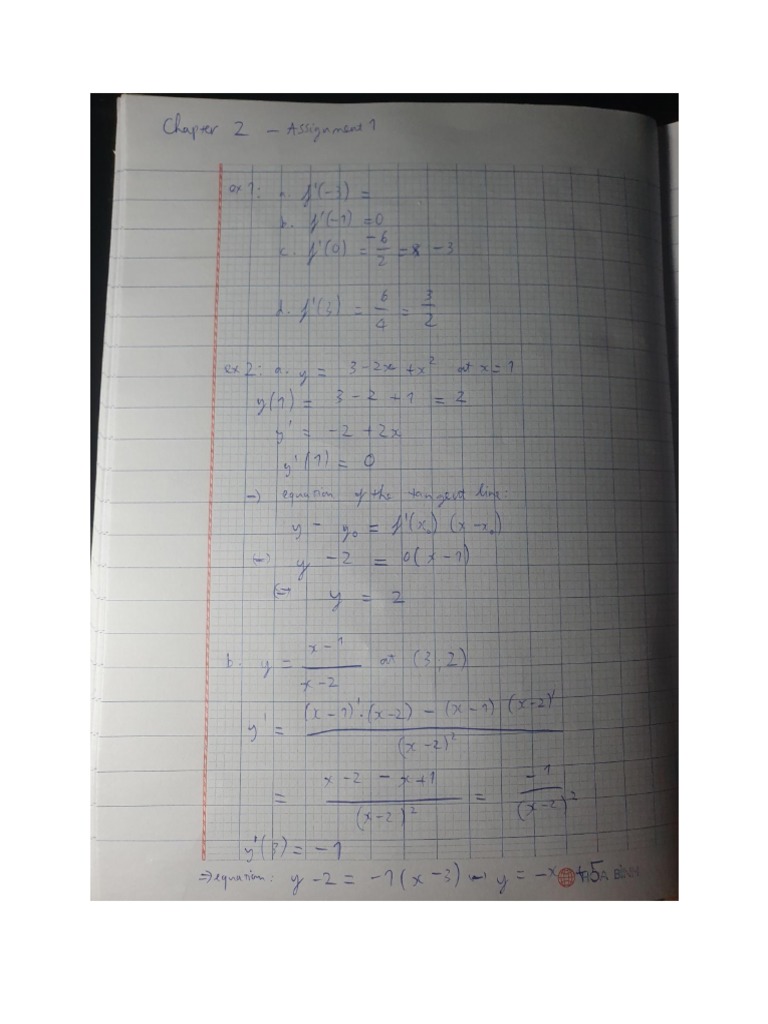 Chapter 2 - Assignment 1
ex 1: a. f'(-3) =
b. f'(-1) = 0
c. f'(0) = -6/2 = -3
d. f'(3) = 6/4 = 3/2
ex 2: a. y = 3-2x+x² at x=1
y(1) = 3-2+1 = 2
y' = -2+2x
y'(1) = 0
→ equation of the tangent line:
y - y₀ = f'(x₀) (x-x₀)
y - 2 = 0(x-1)
y = 2
b. y = (x-1)/(x-2) at (3;2)
y' = ((x-1)'.(x-2) - (x-1)(x-2)')/(x-2)²
= (x-2-x+1)/(x-2)² = -1/(x-2)²
y'(3) = -1
⇒ equation: y-2 = -1(x-3) y = -x+5
HÒA BÌNH